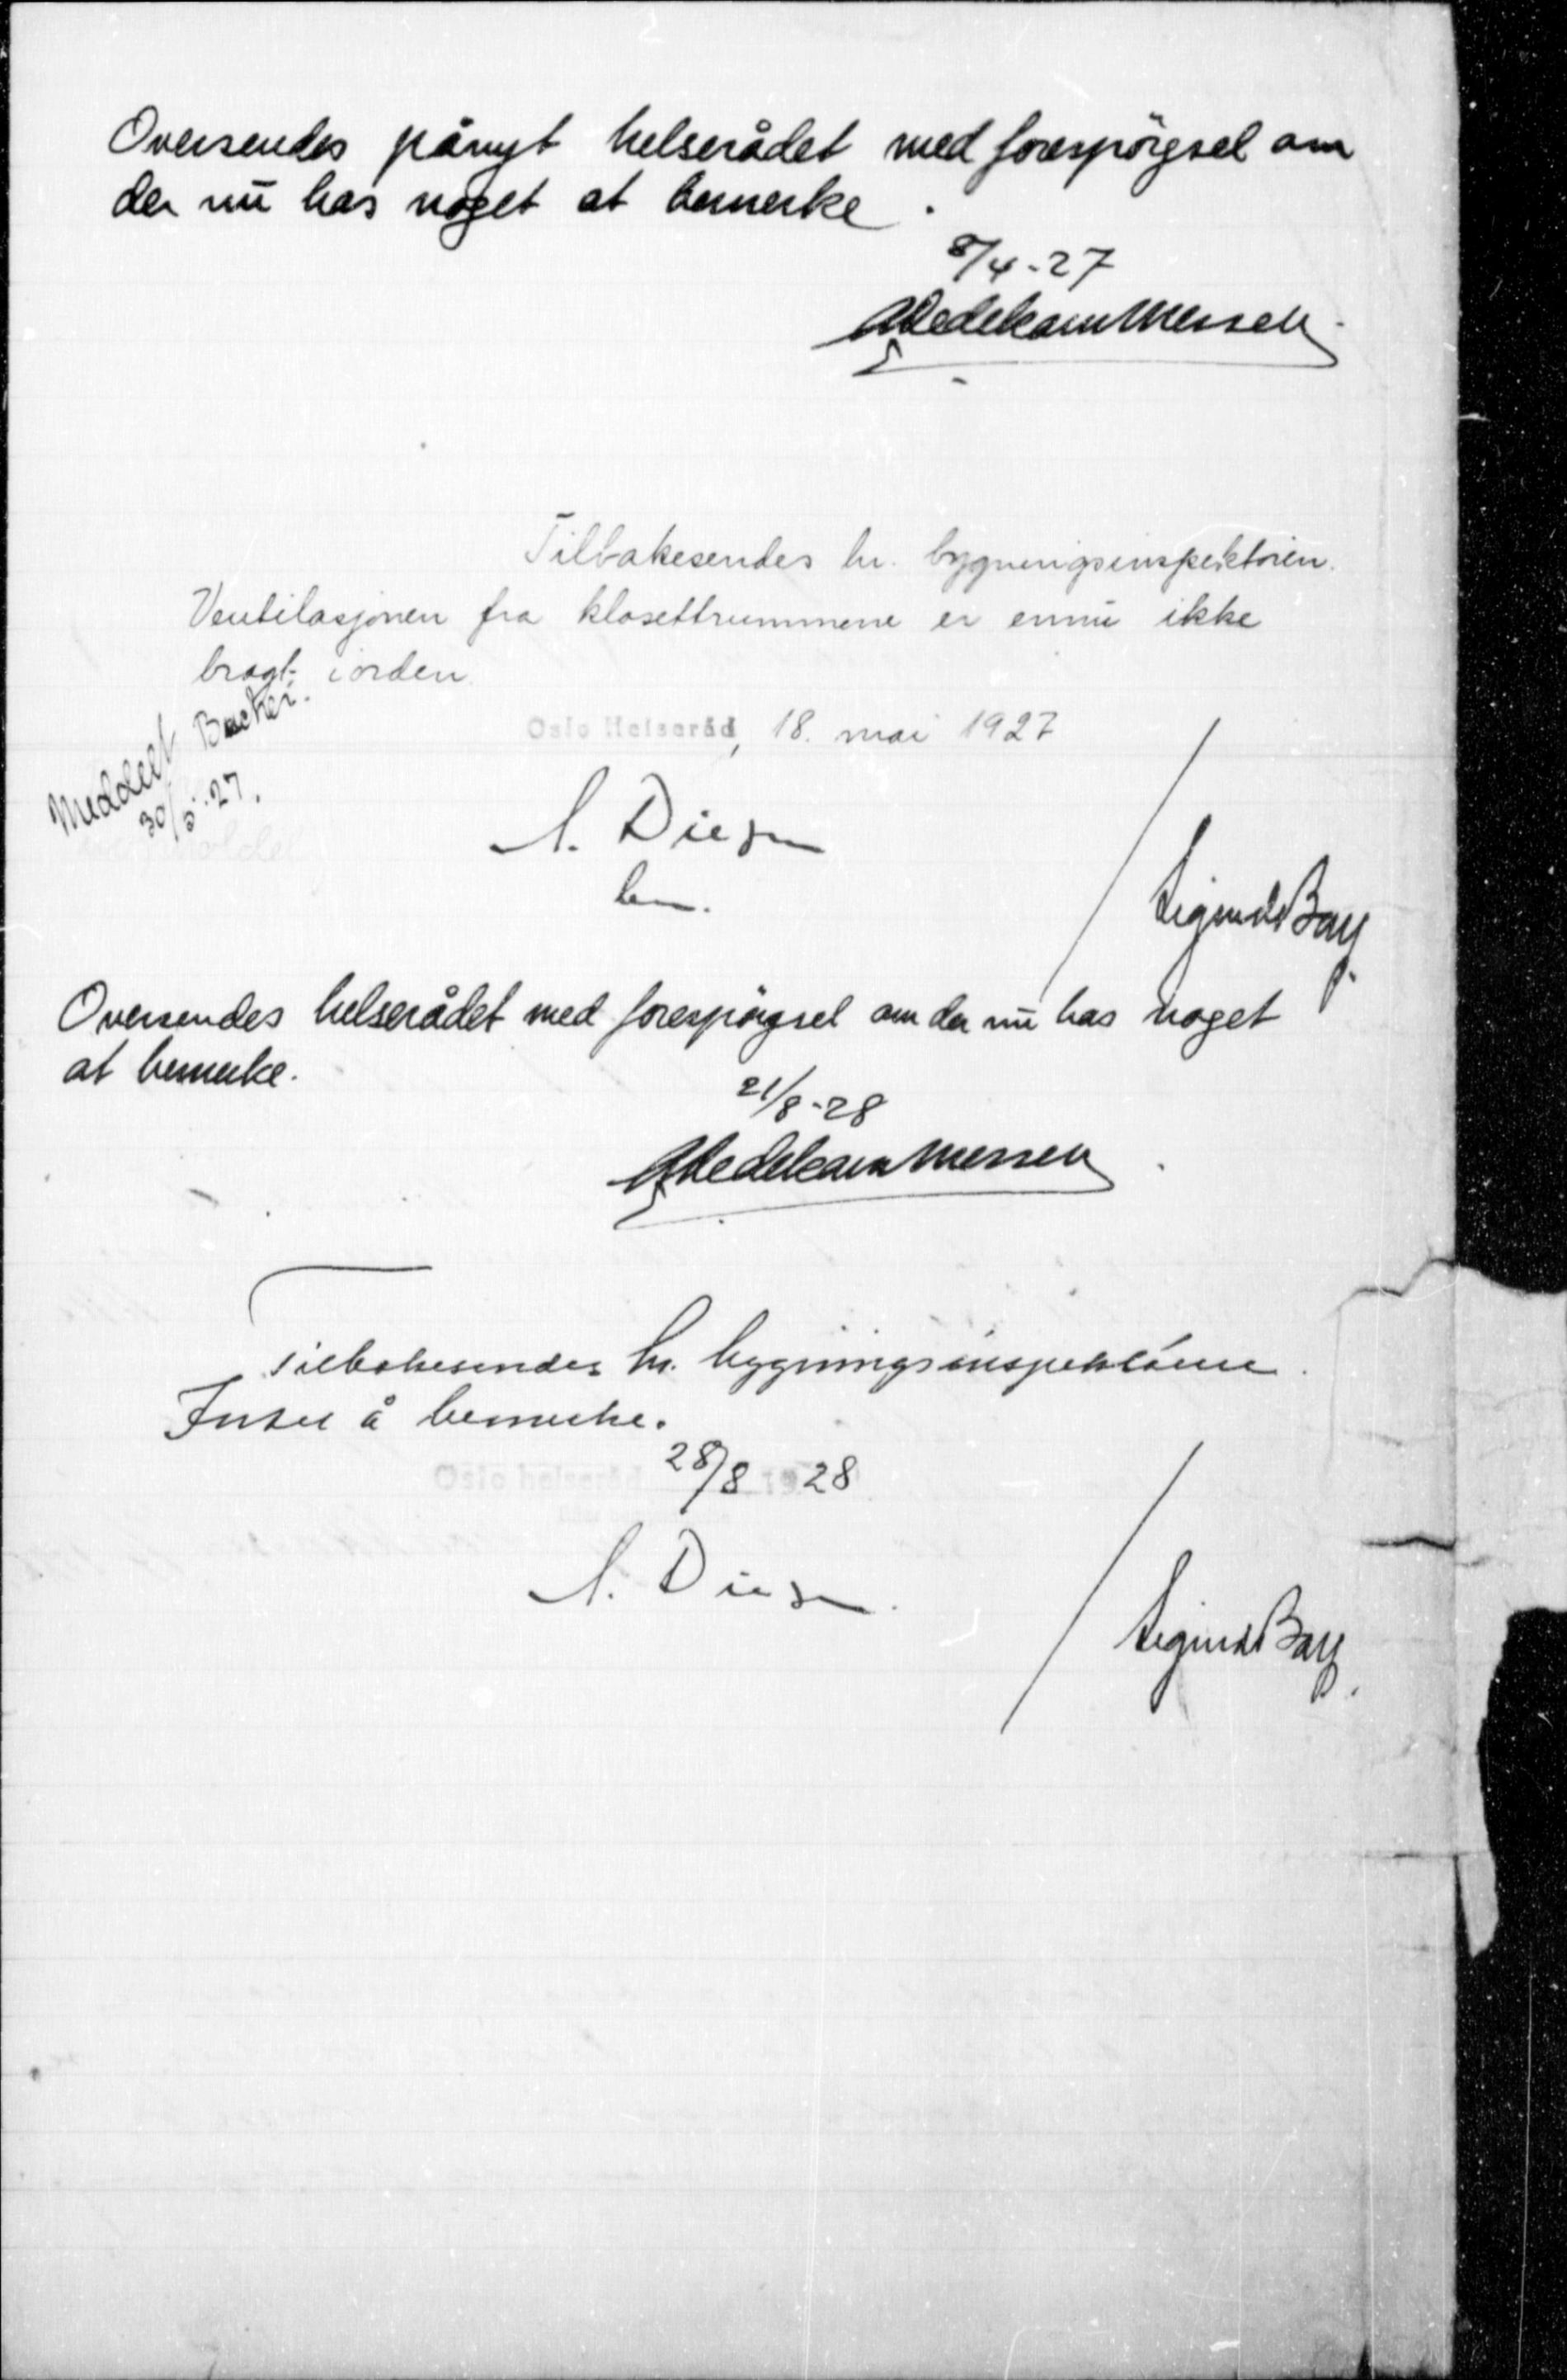 Oversendes pånyt helserådet med forespörgsel om
der nu has noget at bemerke.
8/4-27
Tilbakesendes hr. bygningsinspektören.
Ventilasjonen fra klosettrummene er ennu ikke
bragt iorden.
Meddelt
30/5.27.
Oslo Helseråd, 18. mai 1927
A. Diesen
Sigurd Bay
Oversendes helserådet med forespörgsel om der nu has noget
at bemerke.
21/8-28
Tilbakesendes hr. bygningsinspektören.
Intet å bemerke.
Oslo helseråd 28/8 1928
A. Diesen.
Sigurd Bay.